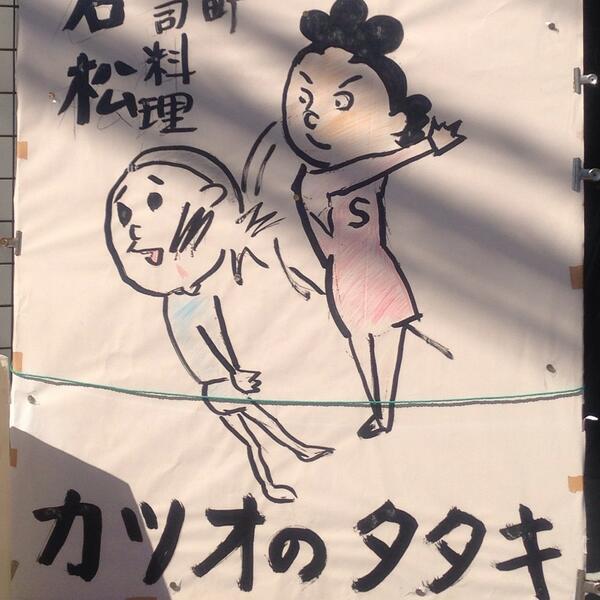 司
料理
松
S
カツオのタタキ